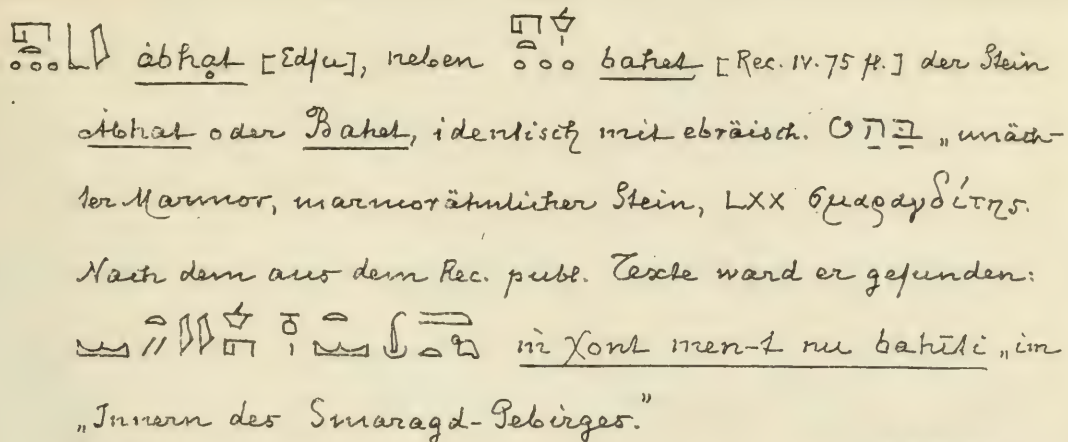 ȧbḥat [Edfu], neben bahet [Rec. IV. 75 ff.] der Stein
Ȧbhat oder Bahet, identisch mit ebräisch. בהט „unäch-
ter Marmor, marmorähnlicher Stein, LXX σμαραγδίτης.
Nach dem aus dem Rec. publ. Texte ward er gefunden:
m χont men-t nu bahiti „im
„Innern des Smaragd-Gebirges."